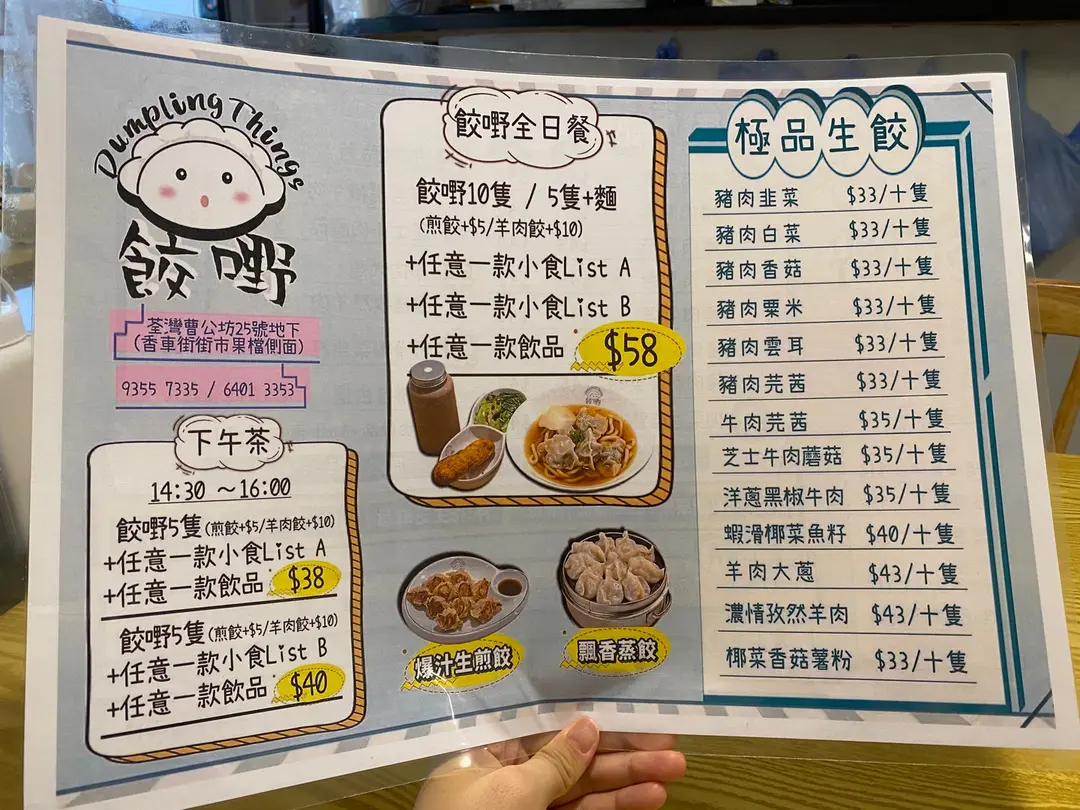 Dumpling Things
餃嘢
荃灣曹公坊25號地下
(香車街街市果檔側面)
9355 7335 / 6401 3353
下午茶
14:30 ~16:00
餃嘢5隻(煎餃+$5/羊肉餃+$10)
+任意一款小食List A
+任意一款飲品 $38
餃嘢5隻(煎餃+$5/羊肉餃+$10)
+任意一款小食List B
+任意一款飲品 $40
餃嘢全日餐
餃嘢10隻 / 5隻+麵
(煎餃+$5/羊肉餃+$10)
+任意一款小食List A
+任意一款小食List B
+任意一款飲品 $58
爆汁生煎餃
飄香蒸餃
極品生餃
豬肉韭菜 $33/十隻
豬肉白菜 $33/十隻
豬肉香菇 $33/十隻
豬肉粟米 $33/十隻
豬肉雲耳 $33/十隻
豬肉芫茜 $33/十隻
牛肉芫茜 $35/十隻
芝士牛肉蘑菇 $35/十隻
洋蔥黑椒牛肉 $35/十隻
蝦滑椰菜魚籽 $40/十隻
羊肉大蔥 $43/十隻
濃情孜然羊肉 $43/十隻
椰菜香菇薯粉 $33/十隻